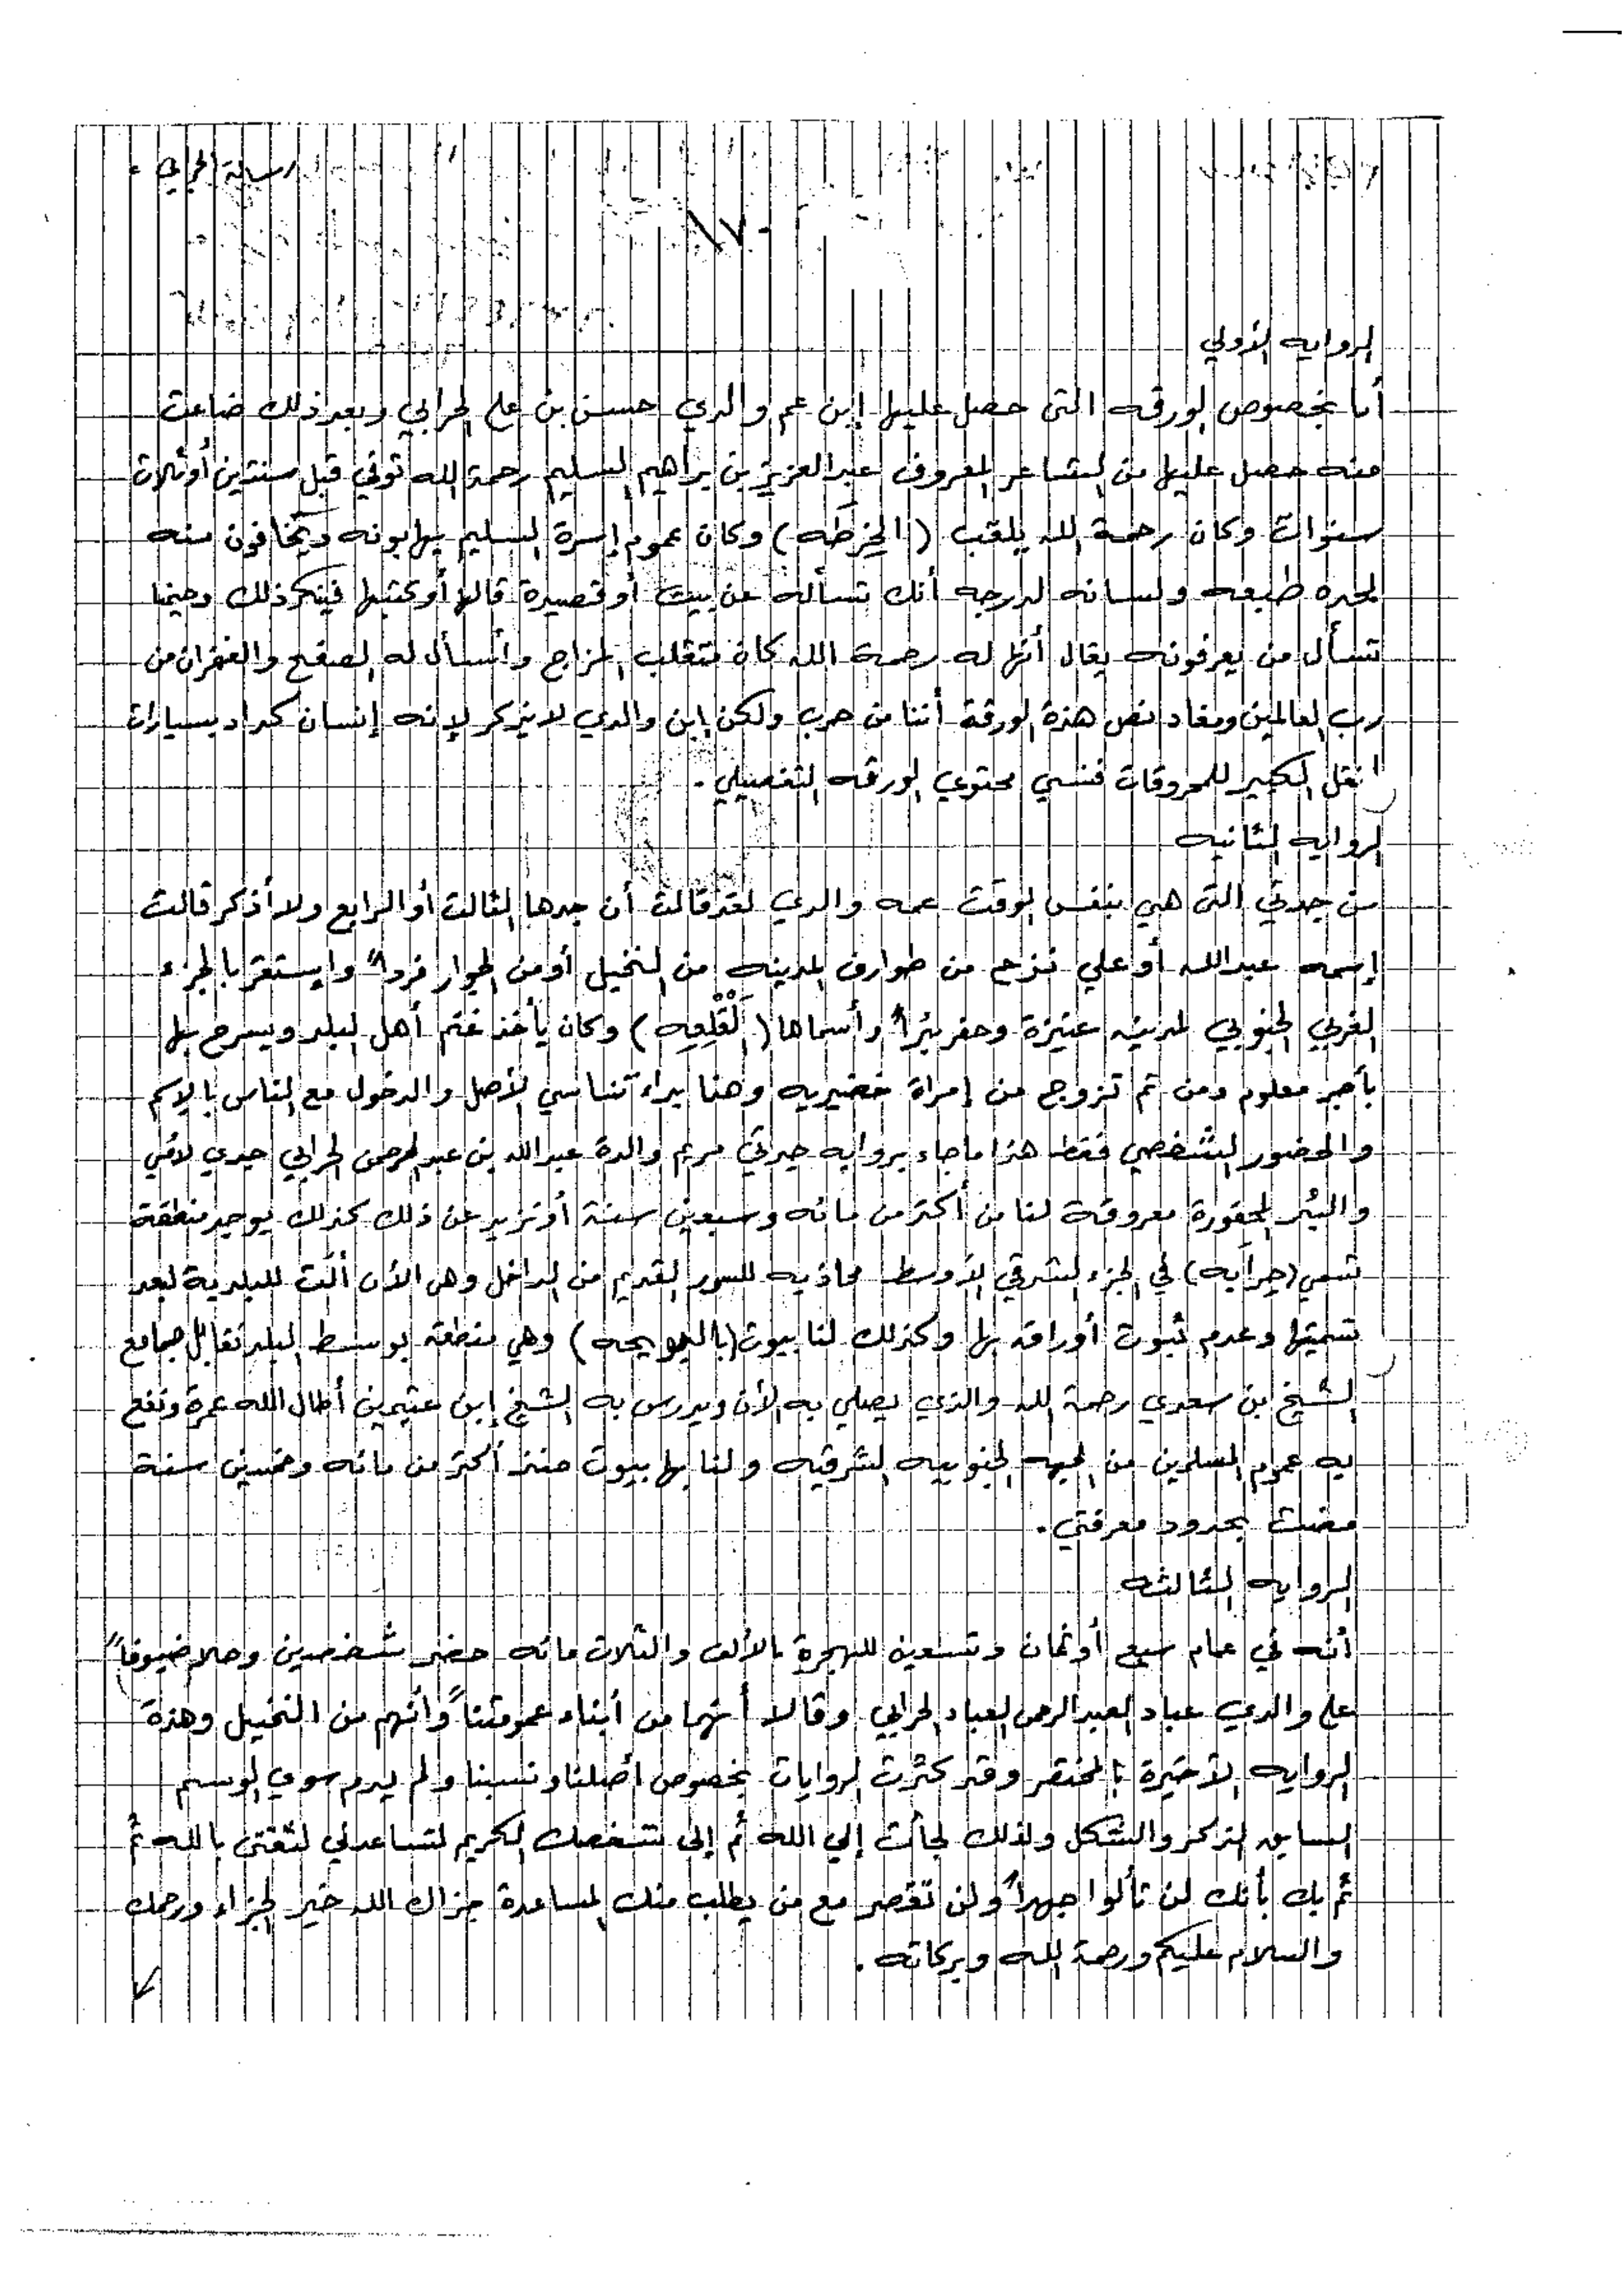 رسالة الحرابي .
١٧٠
الروايه الأولي
أما بخصوص الورقه التى حصل عليها إبن عم والدي حسن بن علي الحرابي وبعد ذلك ضاعت
منه حصل عليها من الشاعر المعروف عبدالعزيز بن براهيم السليم رحمة الله توفي قبل سنتين أوثلاث
سنوات وكان رحمة الله يلقب ( الخِرطَه ) وكان عموم إسرة السليم يهابونه ويخافون منه
لحده طبعه ولسانه لدرجه أنك تسأله عن بيت أوقصيدة قالها أوكتبها فينكر ذلك وحينما
تسأل من يعرفونه يقال أنها له رحمة الله كان متقلب المزاج وأسأل له الصفح والغفران من
رب العالمين ومفاد نص هذة الورقة أننا من حرب ولكن إبن والدي لايذكر لإنه إنسان كداد بسيارات
النقل الكبير للمحروقات فنسي محتوي الورقه التفصيلي .
الروايه الثانيه
من جدتي التى هي بنفس الوقت عمه والدي لقد قالت أن جدها الثالث أو الرابع ولا أذكر قالت
إسمه عبدالله أو علي نزح من طوارف المدينه من النخيل أومن الجوار فرداً وإستقر بالجزء
الغربي الجنوبي لمدينه عنيزة وحفر بئراً وأسماها ( القْلِعِيه ) وكان يأخذ غنم أهل البلد ويسرح بها
بأجر معلوم ومن ثم تزوج من إمراة خضيريه وهنا بداء تناسي الأصل والدخول مع الناس بالإسم
والحضور الشخصي فقط هذا ماجاء بروايه جدتي مريم والدة عبدالله بن عبدالرحمن الحرابي جدي لأمي
والبئر المحفورة معروفة لنا من أكثر من مائه وسبعين سنة أوتزيد عن ذلك كذلك يوجد منطقة
تسمي (حِرَابه) في الجزء الشرقي الأوسط محاذيه للسور القديم من الداخل وهي الأن ألت للبلدية لبعد
تسميتها وعدم ثبوت أوراق بها وكذلك لنا بيوت (بالهويجه ) وهي منطقه بوسط البلد تقابل جامع
الشيخ بن سعدي رحمة الله والذي يصلي به الأن ويدرس به الشيخ إبن عثيمين أطال الله عمرة ونفع
به عموم المسلمين من الجهه الجنوبيه الشرقيه ولنا بها بيوت منذ أكثر من مائه وخمسين سنة
مضت بحدود معرفتي .
الروايه الثالثه
أنه في عام سبع أوثمان وتسعين للهجرة بالألف والثلاث مائه حضر شخصين وحلا ضيوفاً
على والدي عباد العبدالرحمن العباد الحرابي وقالا أنهما من أبناء عمومتناً وأنهم من النخيل وهذة
الروايه الأخيرة بالمختصر وقد كثرت الروايات بخصوص أصلنا ونسبنا ولم يدم سوي الوسم
السابق الذكر والشكل ولذلك لجأت إلي الله ثم إلى شخصك الكريم لتساعدني لثقتى بالله ثم
ثم بك بأنك لن تألوا جهداً ولن تقصر مع من يطلب منك المساعدة جزاك الله خير الجزاء ورحمك
والسلام عليكم ورحمة الله وبركاته .